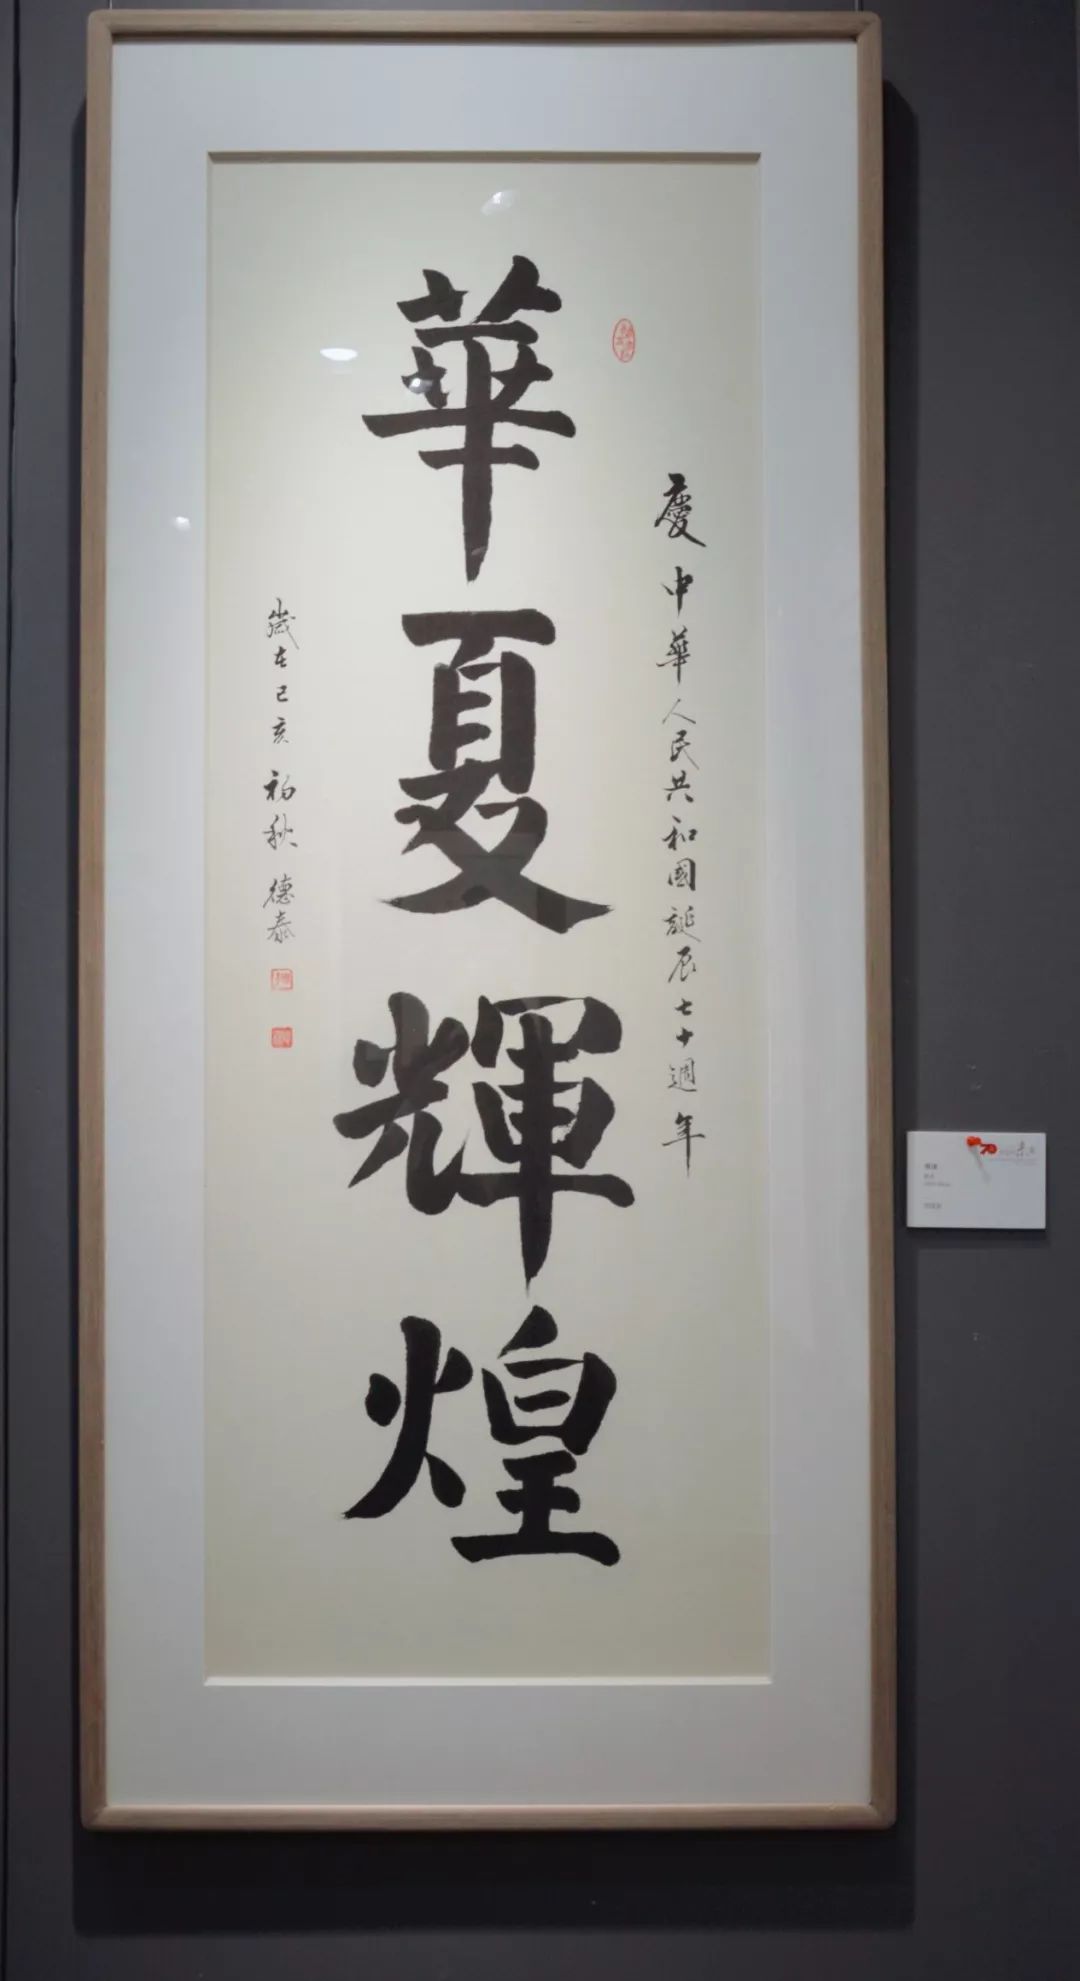 慶中華人民共和國誕辰七十週年
華夏輝煌
歲在己亥初秋德泰
70